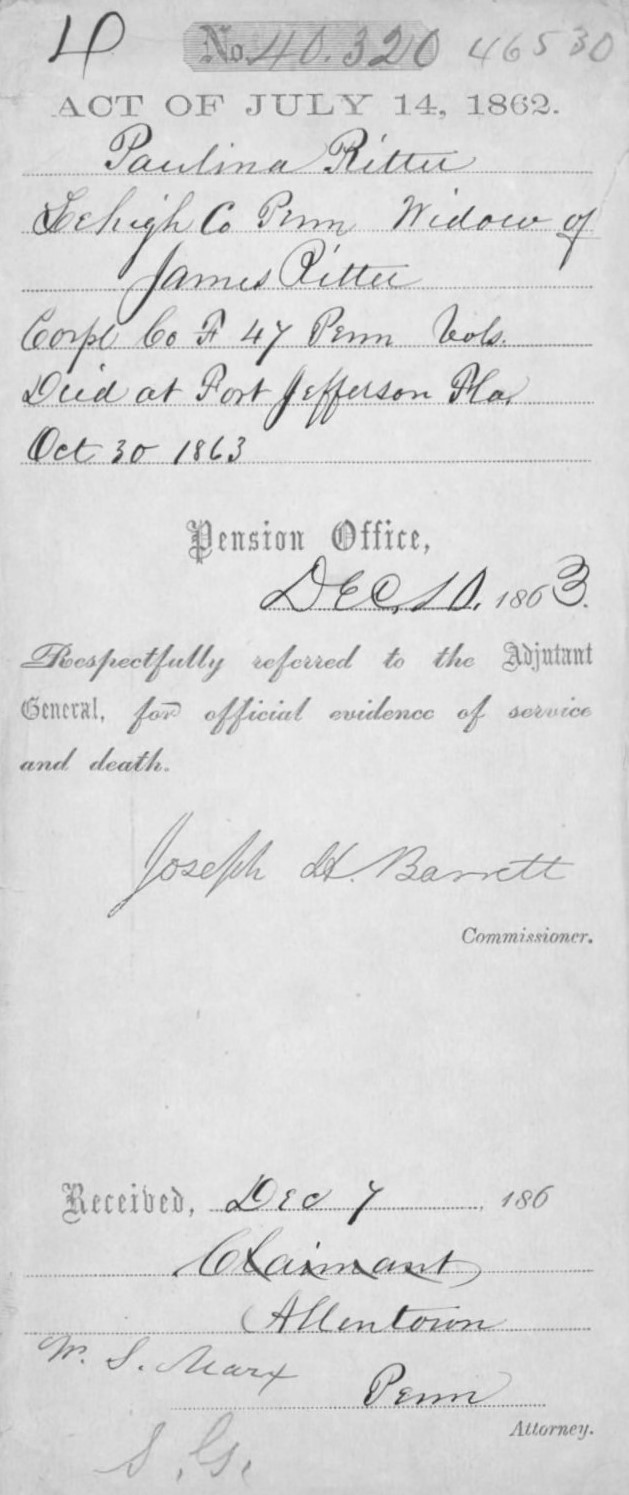 No. 40.320 46530
ACT OF JULY 14, 1862.
Paulina Ritter
Lehigh Co Penn Widow of
James Ritter
Corpl Co F 47 Penn Vols.
Died at Fort Jefferson Fla.
Oct 30 1863
Pension Office,
DEC, 10, 1863.
Respectfully referred to the Adjutant
General, for official evidence of service
and death.
Joseph H. Barrett
Commissioner.
Received, Dec 7, 186
Claimant
Allentown
W. S. Marx
Penn
Attorney.
S.G.